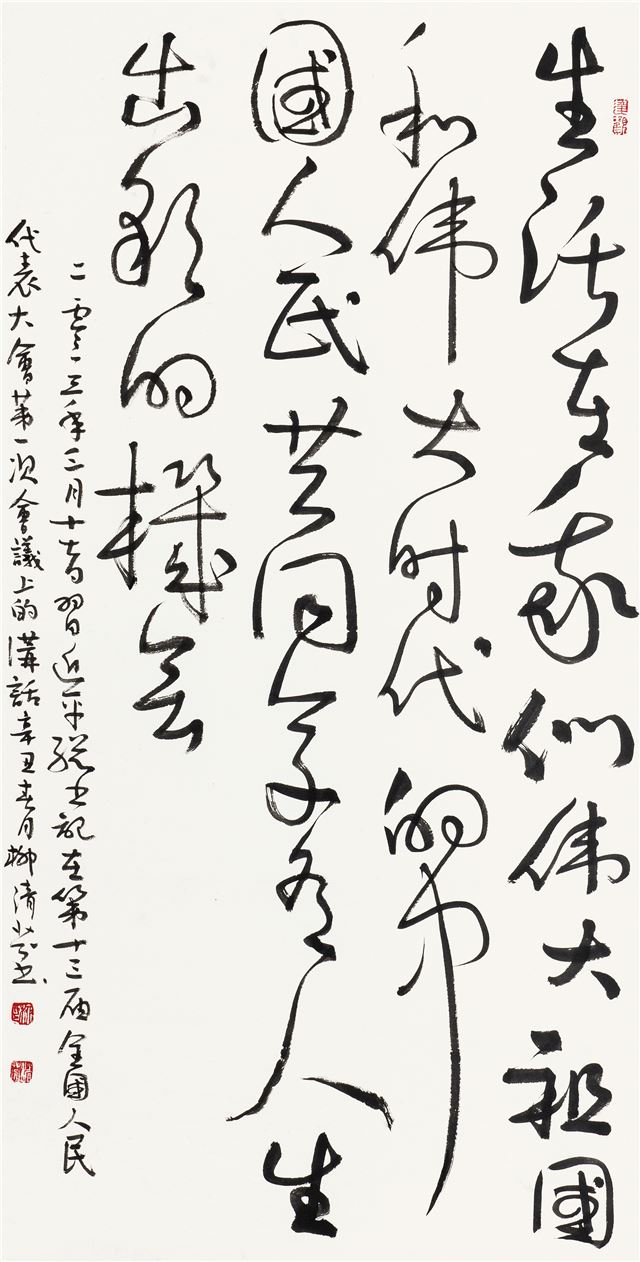 生活在我们伟大祖國
和伟大时代的中
國人民共同享有人生
出彩的機会
二零一三年三月十七日習近平總书記在第十三届全國人民
代表大會第一次會議上的講話辛丑春月柳清书